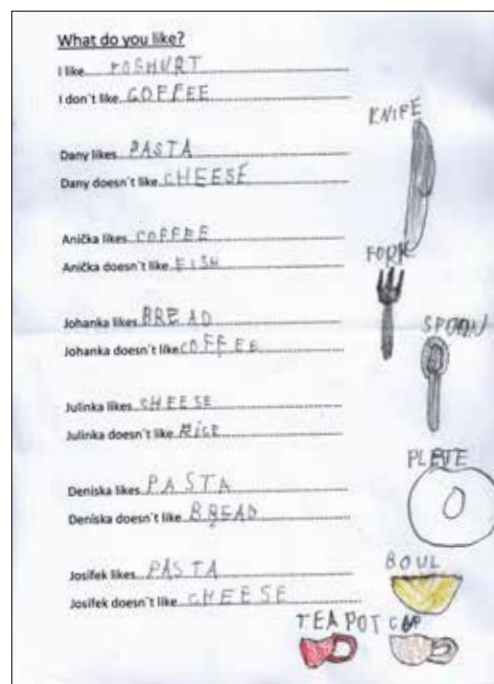 What do you like?
I like YOGHURT
I don´t like COFFEE
KNIFE
Dany likes PASTA
Dany doesn´t like CHEESE
Anička likes COFFEE
FORK
Anička doesn´t like FISH
Johanka likes BREAD
SPOON
Johanka doesn´t like COFFEE
Julinka likes CHEESE
Julinka doesn´t like RICE
PLETE
Deniska likes PASTA
Deniska doesn´t like BREAD
BOUL
Josífek likes PASTA
Josífek doesn´t like CHEESE
TEAPOT CUP